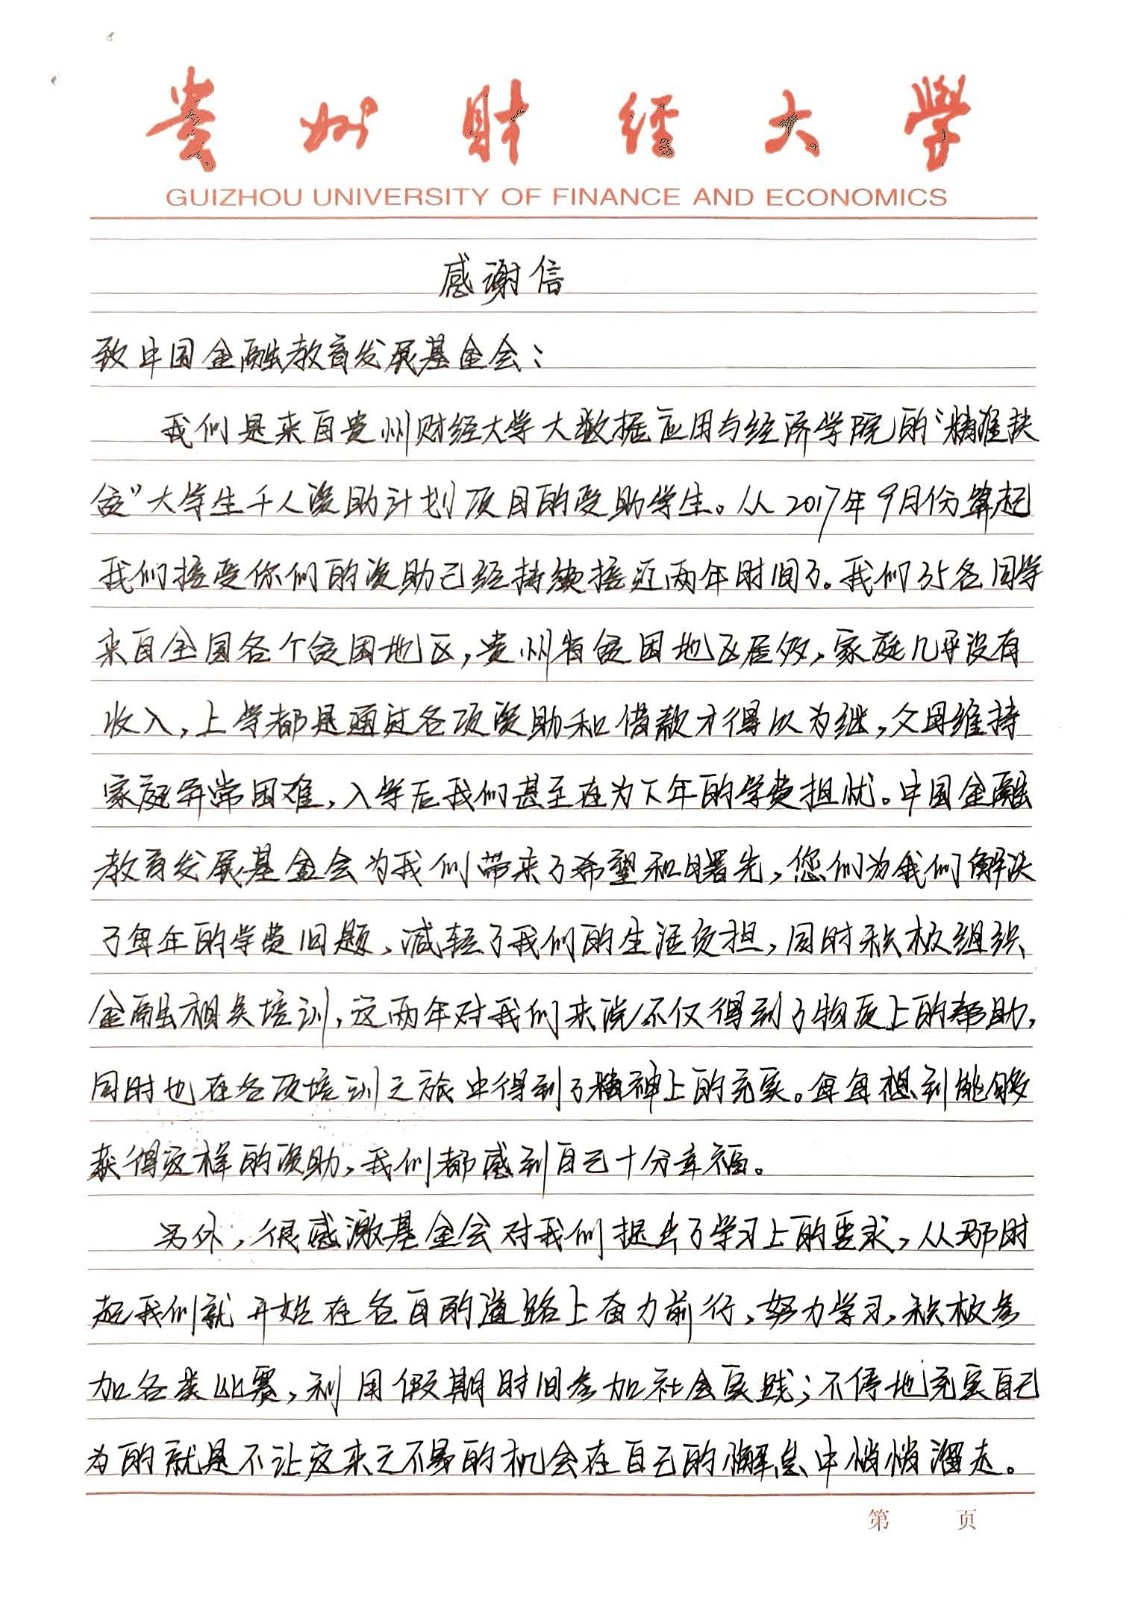 贵州财经大学
GUIZHOU UNIVERSITY OF FINANCE AND ECONOMICS
感谢信
致中国金融教育发展基金会：
我们是来自贵州财经大学大数据应用与经济学院的“精准扶
贫”大学生千人资助计划项目的受助学生。从2017年9月份算起
我们接受你们的资助已经持续接近两年时间了。我们35名同学
来自全国各个贫困地区，贵州省贫困地区居多，家庭几乎没有
收入，上学都是通过各项资助和借款才得以为继，父母维持
家庭异常困难，入学后我们甚至在为下年的学费担忧。中国金融
教育发展基金会为我们带来了希望和曙光，您们为我们解决
了每年的学费问题，减轻了我们的生活负担，同时积极组织
金融相关培训，这两年对我们来说不仅得到了物质上的帮助，
同时也在各项培训之旅中得到了精神上的充实。每每想到能够
获得这样的资助，我们都感到自己十分幸福。
另外，很感激基金会对我们提出了学习上的要求，从那时
起我们就开始在各自的道路上奋力前行，努力学习，积极参
加各类比赛，利用假期时间参加社会实践；不停地充实自己
为的就是不让这来之不易的机会在自己的懈怠中悄悄溜走。
第 页